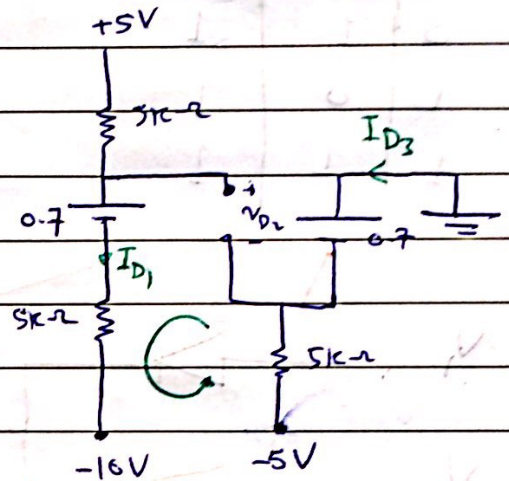 +5V
5K Ω
I_D3
+
0.7
V_D2
-
0.7
I_D1
5K Ω
5K Ω
-10V
-5V